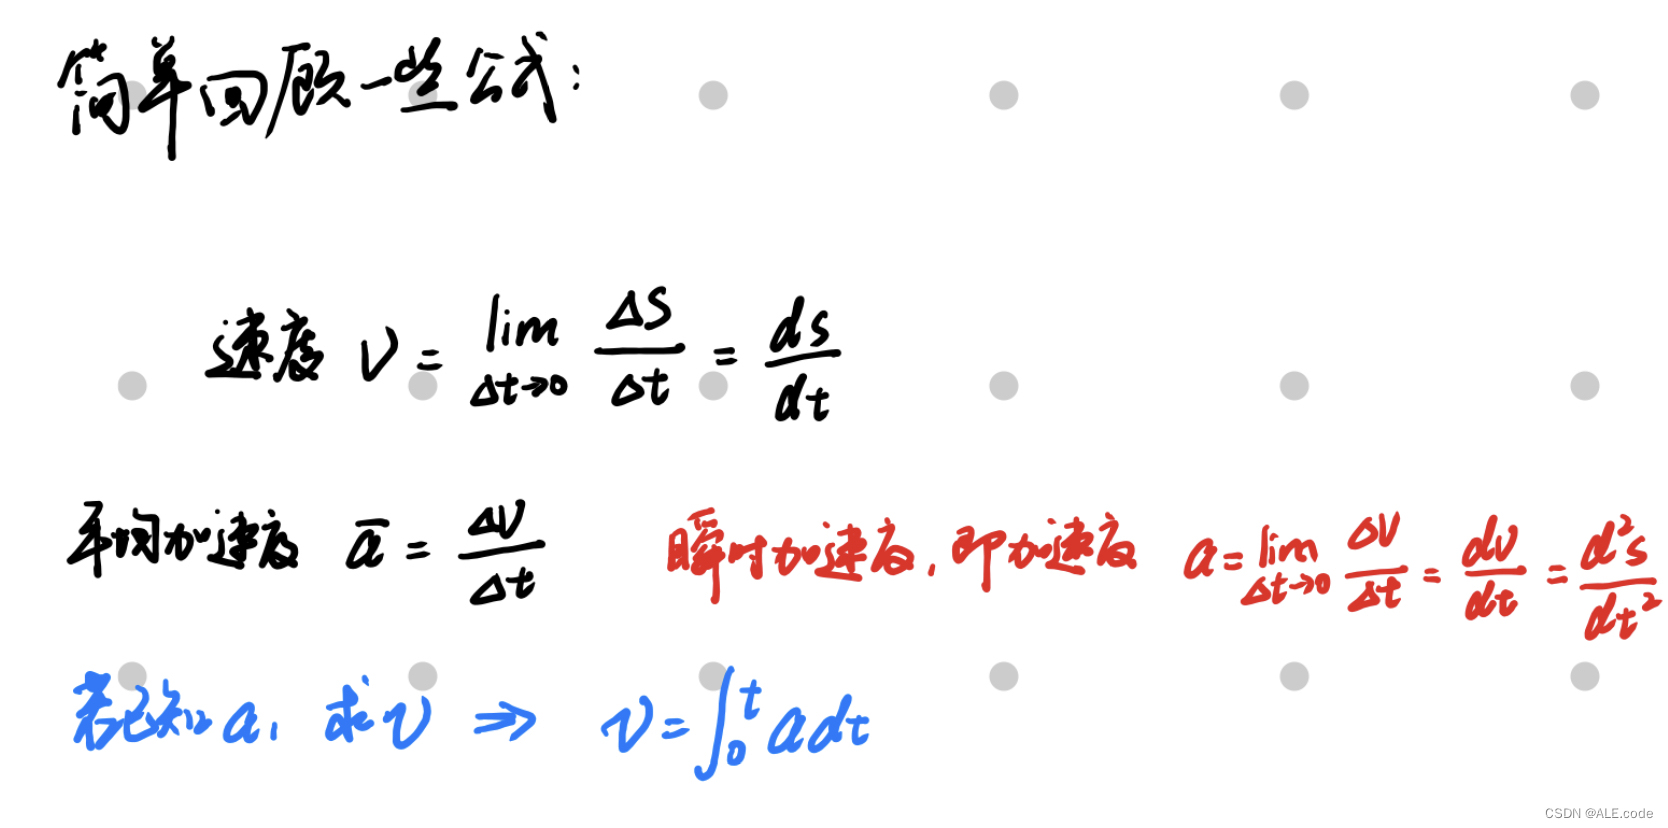 简单回顾一些公式:
速度 v = lim Δt→0 ΔS/Δt = ds/dt
平均加速度 a̅ = Δv/Δt 瞬时加速度,即加速度 a = lim Δt→0 Δv/Δt = dv/dt = d²s/dt²
若已知a, 求v ⇒ v = ∫₀ᵗ a dt
CSDN @ALE.code